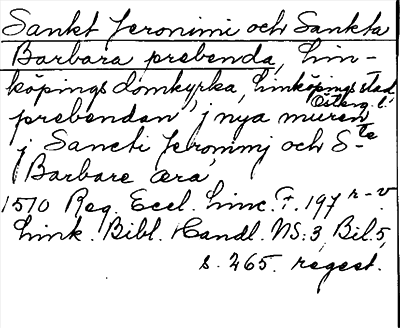 Sankt Jeronimi och Sankta
Barbara prebenda, Lin-
köpings domkyrka, Linköpings stad
Österg. l.
prebendan j nya muren
j Sancti Jeronimj och S-te
Barbare æra
1510 Reg. Eccl. Linc. F. 197 r-v.
Link. Bibl. Handl. NS:3, Bil. 5,
s. 265. regest.